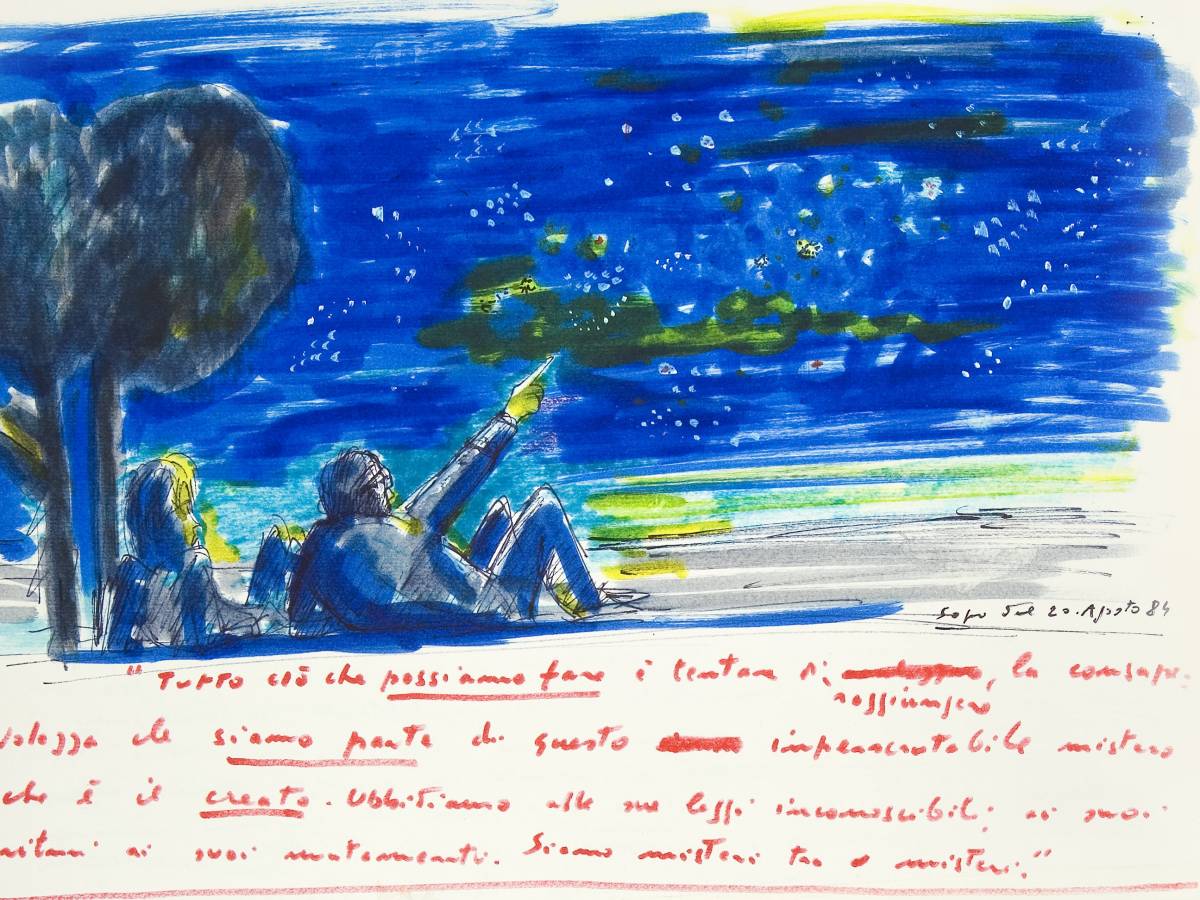 Sogno del 20. Agosto 84
"Tutto ciò che possiamo fare è tentare di , la consape-
raggiungere
volezza che siamo parte di questo impenscrutabile mistero
che è il creato. Ubbidiamo alle sue leggi inconoscibili, ai suoi
ritmi ai suoi mutamenti. Siamo misteri tra misteri."